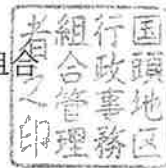 組合
国頭地区
行政事務
組合管理
者之印